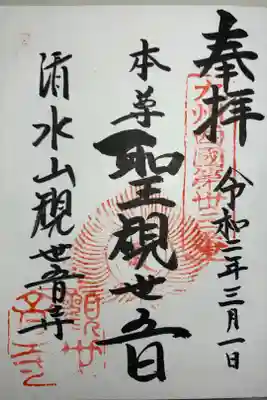 奉拝
九州西國第廿三
令和二年三月一日
本尊
聖観世音
清水山観世音寺